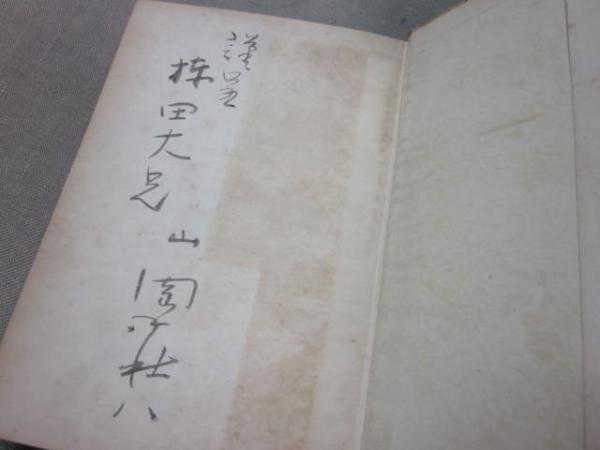 謹呈
棟田大兄
山岡荘八